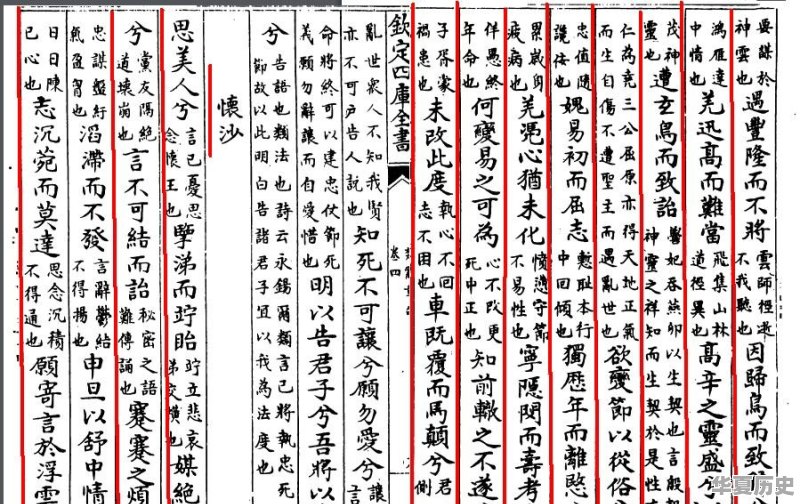 要謀於神雲也過豐隆而不將雲師徑逝不我聽也因歸鳥而致
鴻雁達中情也羌迅高而難當飛集山林道徑異也高辛之靈盛
茂神靈也遭玄鳥而致詒嚳妃吞燕卵以生契也言殷契神靈之祥知而生契於是性
仁為堯三公屈原亦得天地正氣而生自傷不遭聖主而遇亂世也欲變節以從俗
忠值隨讒佞也媿易初而屈志慙耻本行中回傾也獨歷年而離愍
累歲身疲病也羌馮心猶未化憤懣守節不易性也寧隱閔而壽考
佯愚終年命也何變易之可為心不改更死中正也知前轍之不遂
子胥蒙禍患也未改此度執心不回志不困也車既覆而馬顛兮君側
欽定四庫全書
卷四
亂世衆人不知我賢亦不可戶告人說也知死不可讓兮願勿愛兮讓言
命將終可以建忠仗節死義願勿辭讓而自愛惜也明以告君子兮吾將以
兮告語也類法也詩云永錫爾類言已將執忠死節故以此明白告諸君子宜以我為法度也
懷沙
思美人兮言已憂思念懷王也擥涕而竚眙竚立悲哀涕交横也媒絕
兮黨友隔絶道壞崩也言不可結而詒秘密之語難傳誦也蹇蹇之煩
忠謀盤紆氣盈胷也滔滯而不發言辭鬱結不得揚也申旦以舒中情
日日陳已心也志沉菀而莫達思念沉積不得通也願寄言於浮雲
华夏历史